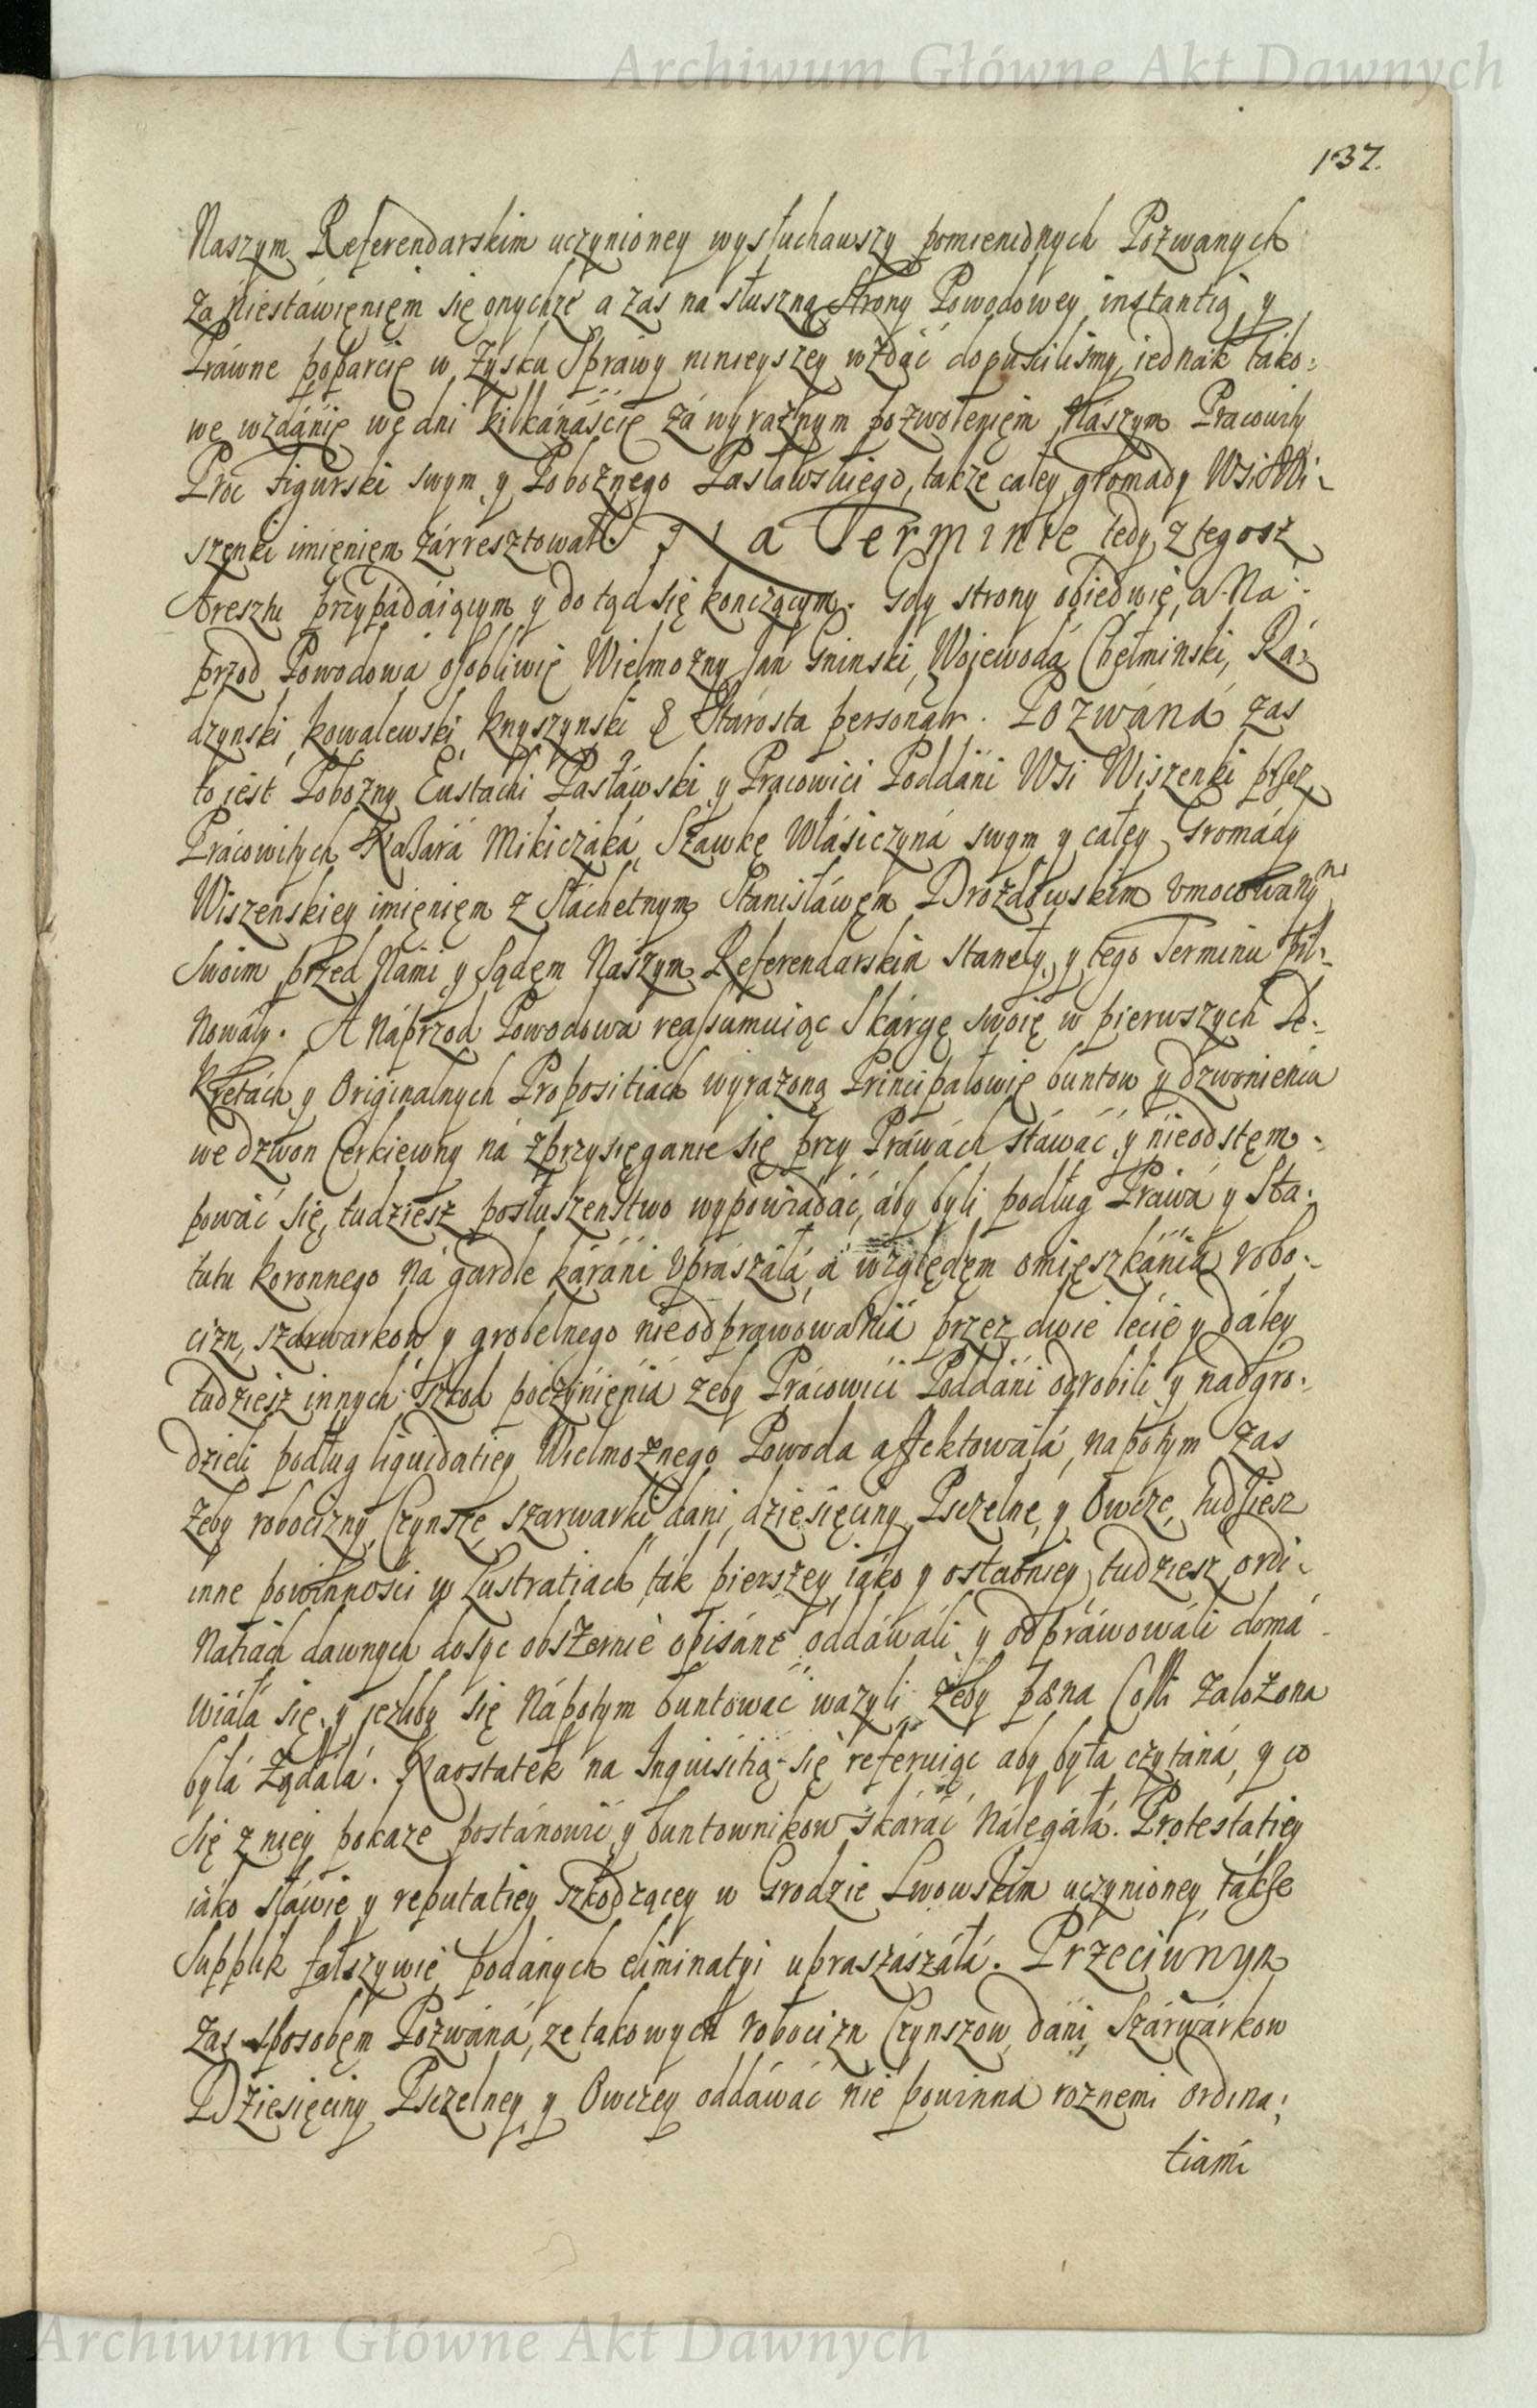 Archiwum Główne Akt Dawnych
137.
Naszym Referendarskim uczynioney wysłuchawszy pomienionych Pozwanych
za niestáwięnięm się onychże a zas na słuszną strony Powodowey instantią y
Práwne poparcie w zysku Spráwy ninieyszey wzdáć dopuścilismy, iednák táko-
we wzdánie we dni kilkánáście zá wyraźnym pozwolenięm Nászym Pracowity
Proc Figurski swym y Pobożnego Pasławskiego, także całey gromady Wsi Wi-
szenki imięnięm zárresztował. Na Terminie tedy z tegosz
Aresztu przypádáiącym y do tąd się kończącym. Gdy strony obiedwie, a Na-
przod Powodowa osobliwie Wielmożny Jan Gninski, Wojewodá Chełminski, Rá-
dzynski, Kowalewski, Knyszynski & Stárosta personalr. Pozwáná zas
to jest Pobożny Eustáchi Pasłáwski y Pracowici Poddáni Wsi Wiszenki przez
Prácowitych Mikiczáká, Szawkę Włásiczyná swym y całey Gromády
Wiszenskiey imięnięm z Slachetnym Stanisłáwęm Drozdowskim vmocowanym
Swoim przed Nami y Sądęm Nászym Referendarskim stanęły, y tego Terminu pil-
nowáły. A náprzod Powodowa reassumuiąc Skárgę swoię w pierwszych De-
kretách y Originalnych Propositiach wyrażoną Principałowie buntow y dzwonienia
we dzwon Cerkiewny ná zprzysięganie się przy Práwách stáwáć y nieodstęm-
powáć się, tudziesz posłuszeństwo wypowiádáć, áby byli podług Práwá y Sta-
tutu koronnego ná gardle káráni vpraszáłá, á względęm omięszkánia robo-
cizn, szarwarkow y grobelnego nieodprawowania przez dwie lecie y dáley
tudziesz innych szkod poczynięnia żeby Prácowici Poddáni odrobili y nadgro-
dzieli podług liquidatiey Wielmożnego Powoda affektowáłá, nápotym zas
żeby robocizny, Czynsze, szarwarki dani, dziesięciny Pszczelne y Owcze, tudziesz
inne powinności w Lustratiach ták pierszey iáko y ostatniey, tudziesz ordi-
natiách dawnych dosyc obszernie opisáne oddáwáli y odpráwowáli domá-
wiáłá się, y jezliby się nápotym buntowáć ważyli żeby pæna Colli założona
byłá żądáłá. Naostatek na Inquisitią się referuiąc aby była czytáná, y co
się z niey pokaże postánowić y buntownikow skáráć nálegáłá. Protestátiey
iáko słáwie y reputatiey szkodzącey w Grodzie Lwowskim uczynioney, tákże
Supplik fałszywie podánych eliminatyi upraszászáłá. Przeciwnym
zas sposobęm Pozwána, ze takowych robocizn Czynszow, dáni, Szárwárkow
Dziesięciny Pszczelney y Owczey oddáwáć nie powinna roznemi ordina-
tiami
Archiwum Główne Akt Dawnych